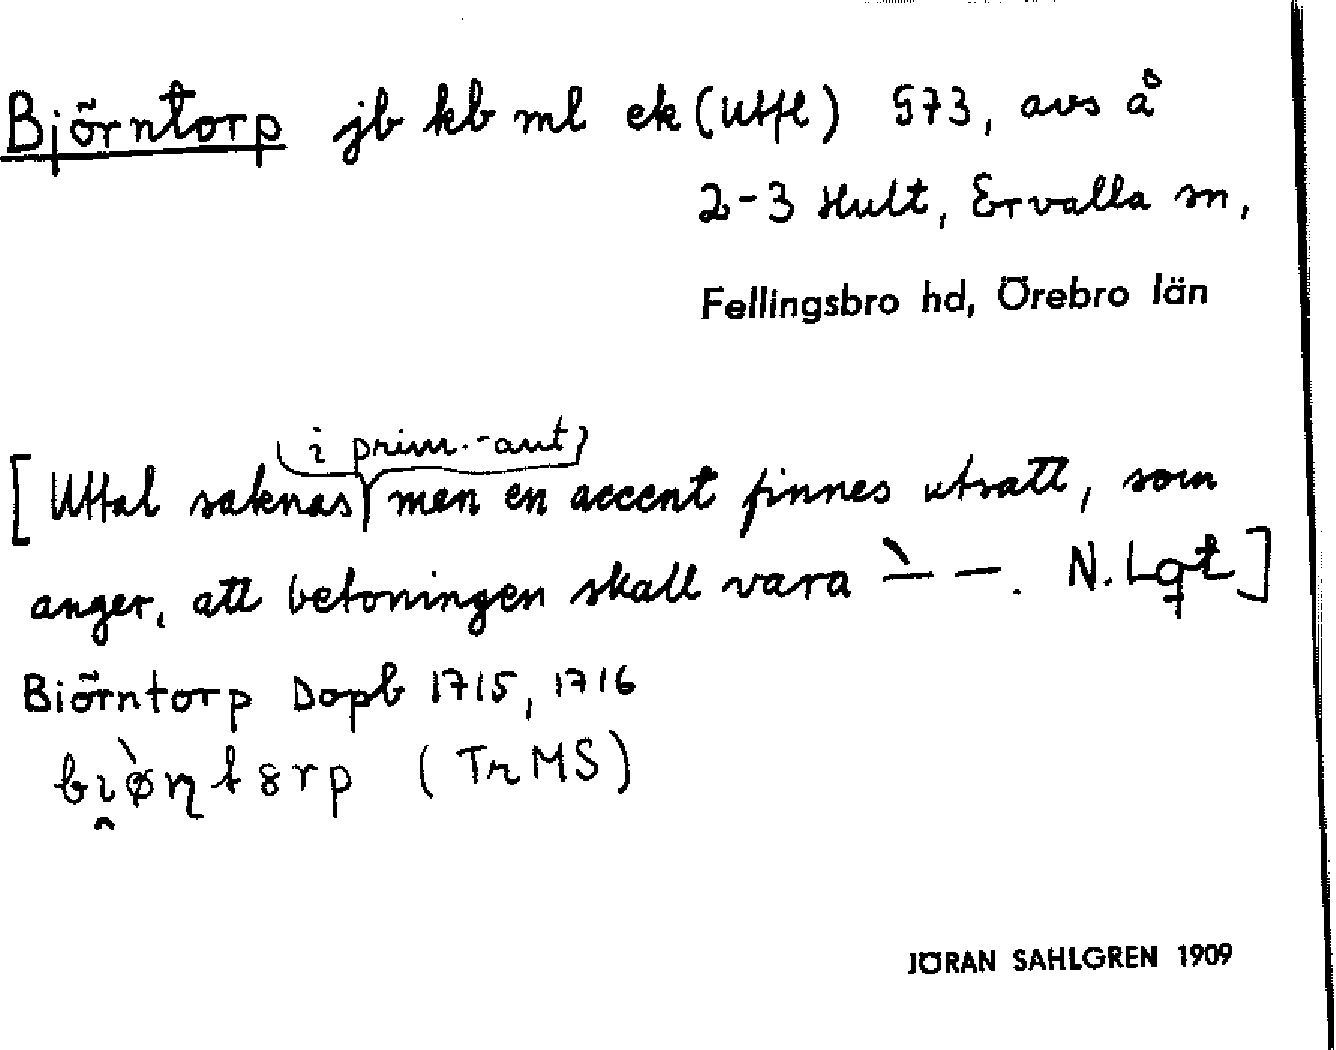 Björntorp jb kb ml ek (Utfl) §73, avs å
2-3 Hult, Ervalla sn,
Fellingsbro hd, Örebro län
i prim.-ant
[Uttal saknas men en accent finnes utsatt, som
anger, att betoningen skall vara ̀— —. N. Lqt]
Biörntorp Dopb 1715, 1716
(TrMS)
JÖRAN SAHLGREN 1909